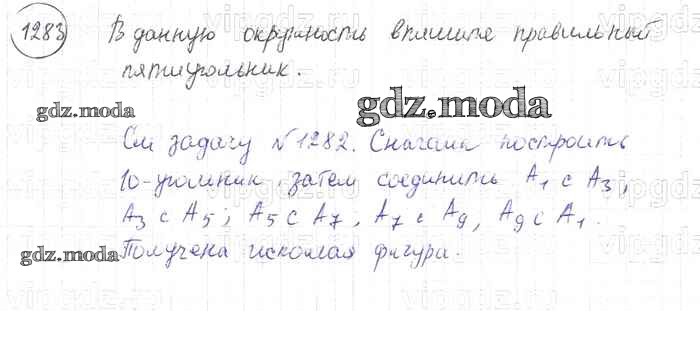 1283 В данную окружность впишите правильный
пятиугольник.
gdz.moda
gdz.moda
См задачу №1282. Сначала построить
10-угольник, затем соединить A1 с A3,
A3 с A5; A5 с A7, A7 с A9, A9 с A1.
gdz.moda
Получена искомая фигура.